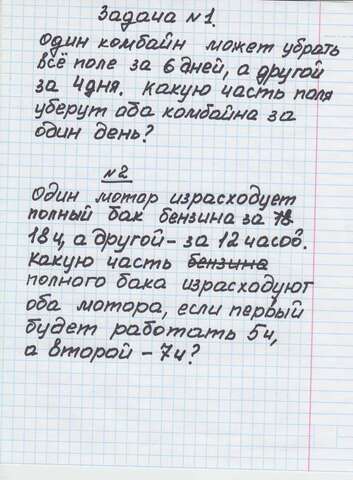 Задача №1.
Один комбайн может убрать
всё поле за 6 дней, а другой
за 4 дня. Какую часть поля
уберут оба комбайна за
один день?
№2
Один мотор израсходует
полный бак бензина за 18
18ч, а другой - за 12 часов.
Какую часть бензина
полного бака израсходуют
оба мотора, если первый
будет работать 5ч,
а второй - 7ч?